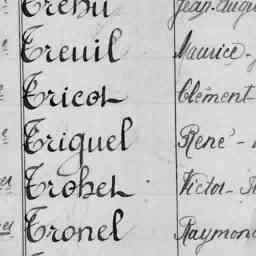 Trehu Jean-Augu
Treuil Maurice-
Tricot Clément-
Triquel René-
Trohel Victor-
Tronel Raymond